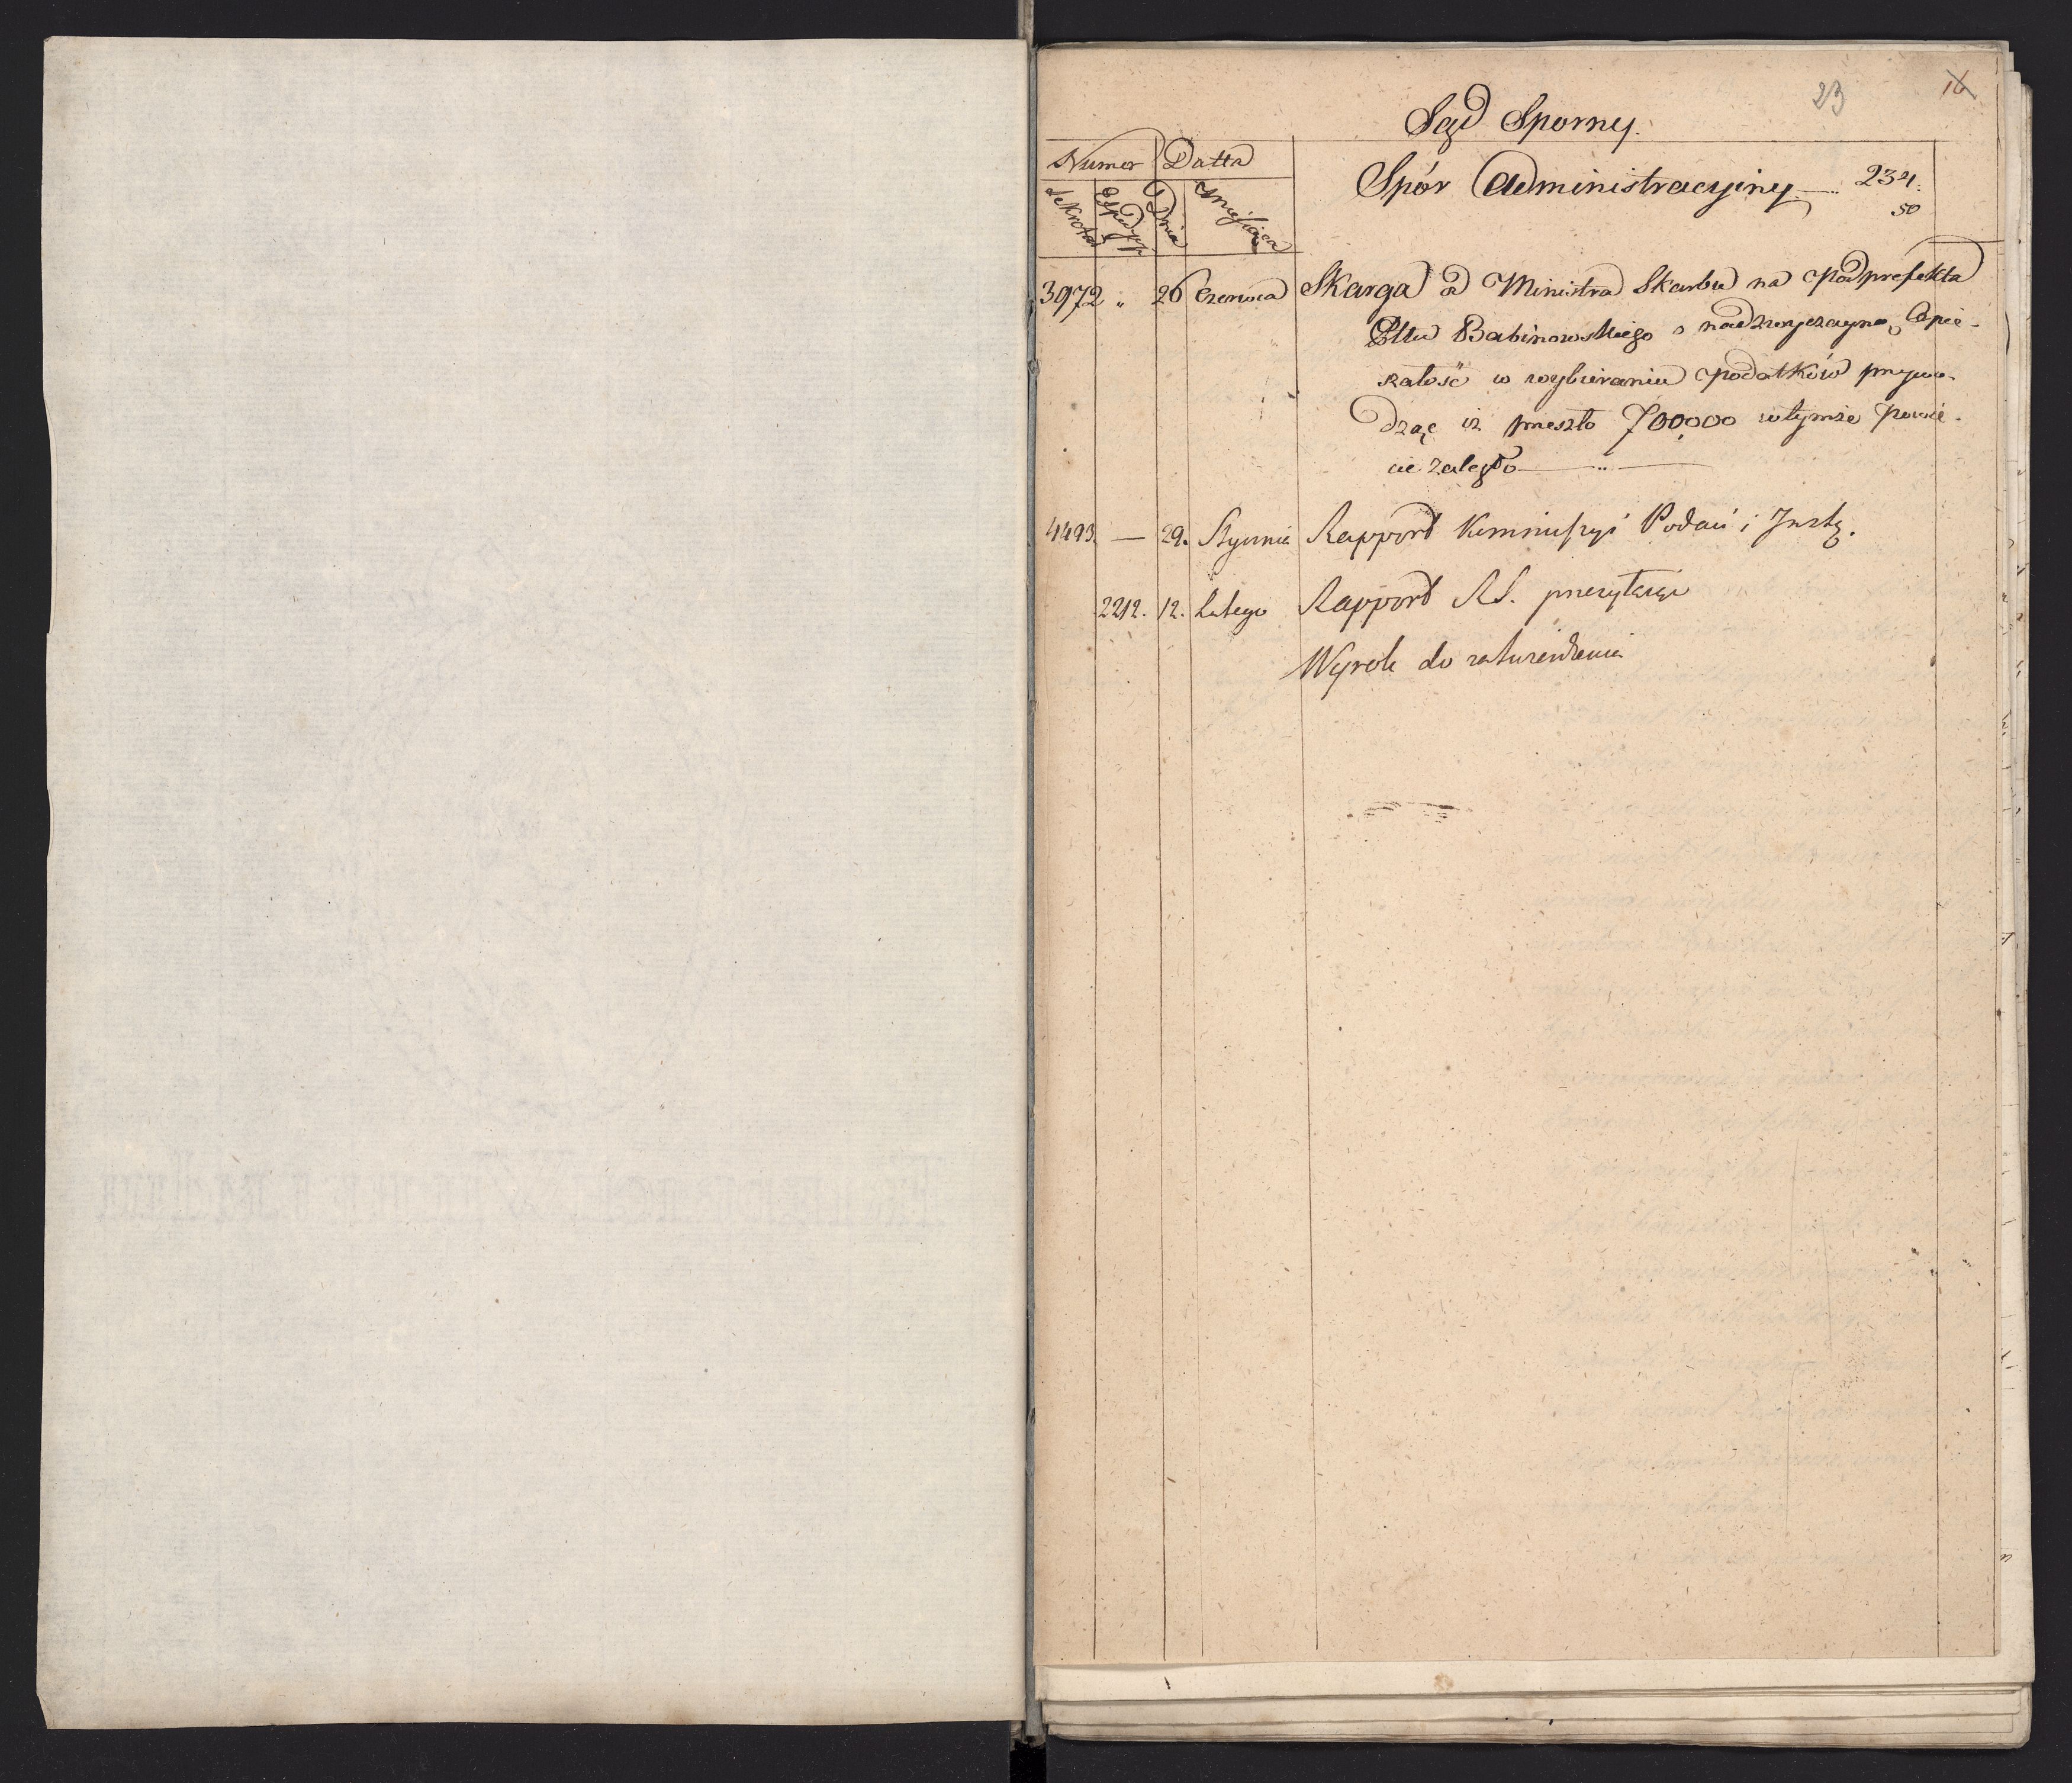 23 16
Sąd Sporny.
Numer Datta
Sekretar Espedycyi Dnia Miesiąca
Spór Administracyiny 234.
50
3972 " 26 Czerwca Skarga od Ministra Skarbu na Podprefekta
Pttu Babinowskiego o nadzwyczayną Opie-
szałość w wybieraniu podatków przywo-
dząc iż przeszło 700,000 w tymże Powie-
cie zaległo
4493. — 29. Stycznia Rapport Kommissyi Podań i Instr.
2212. 12. Lutego Rapport RS. przesyłaiąc
Wyrok do zatwierdzenia